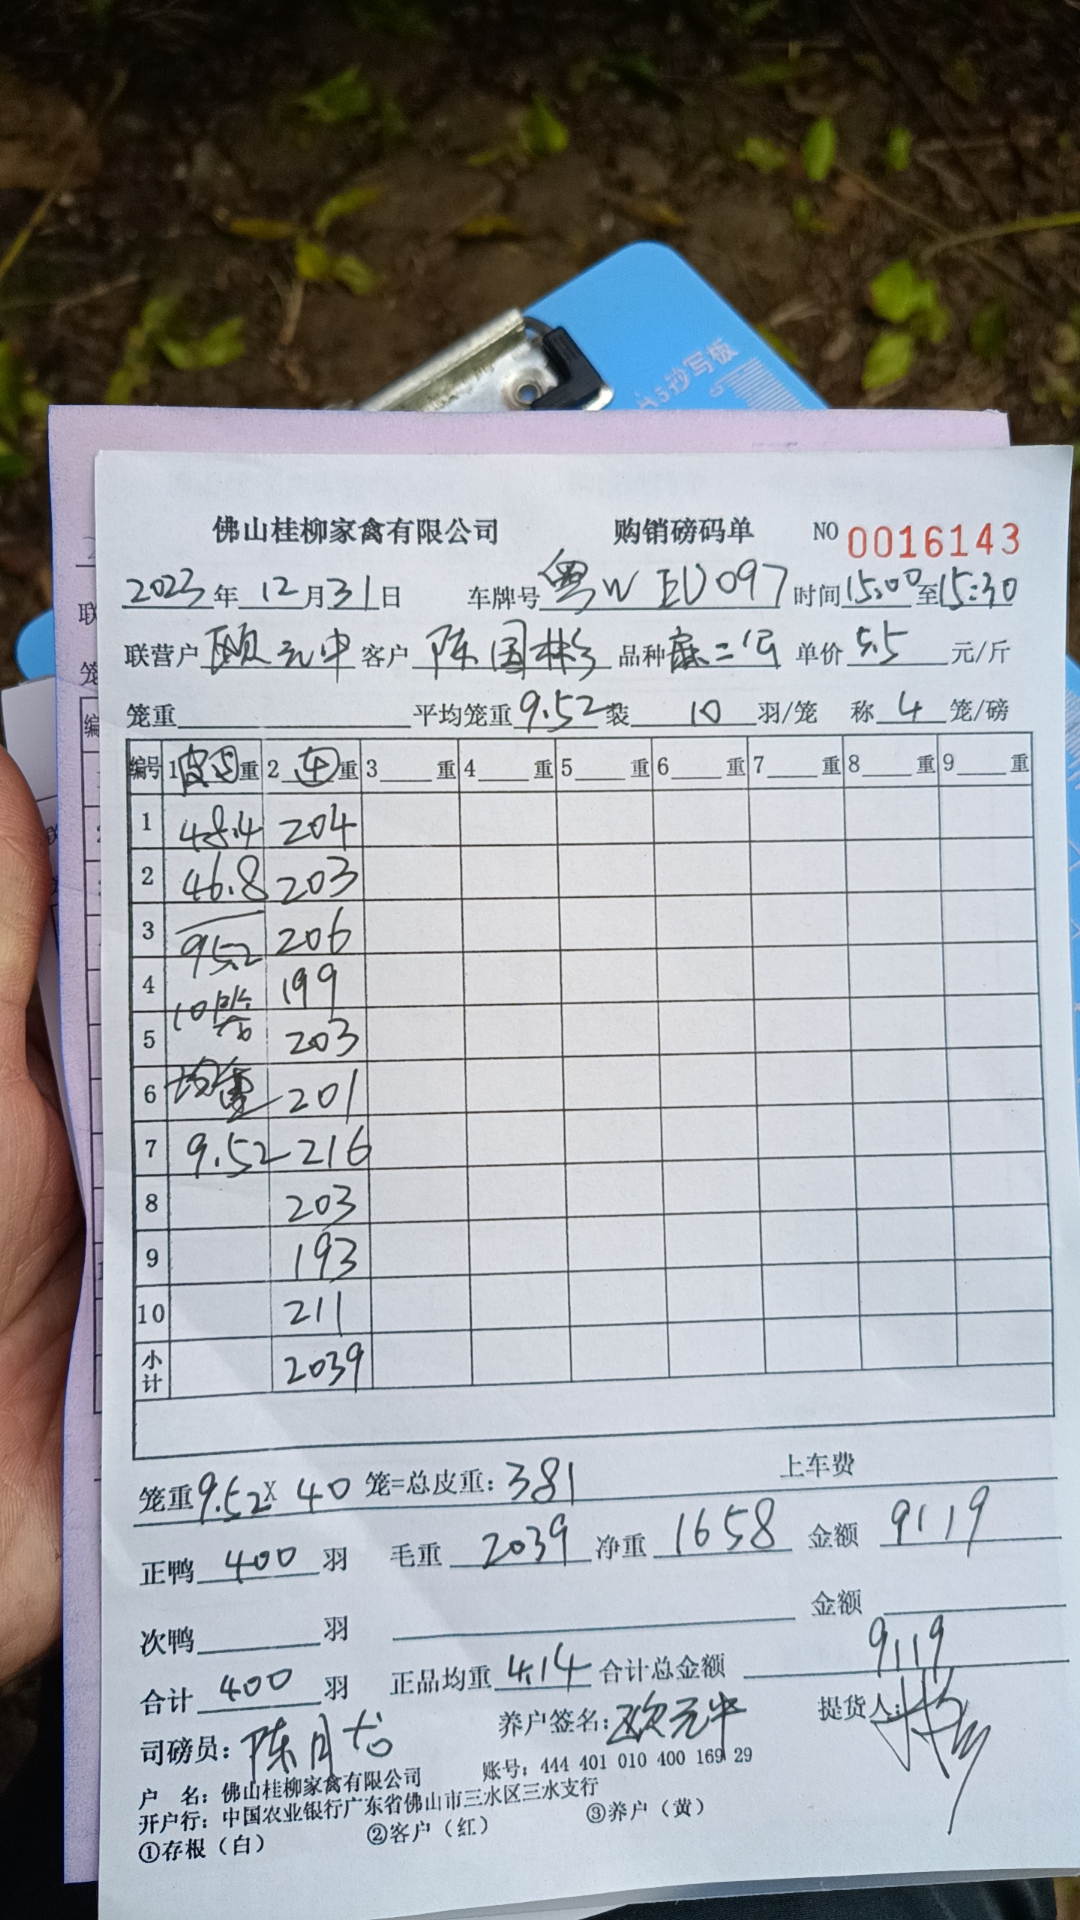 A5抄写板
佛山桂柳家禽有限公司 购销磅码单 NO 0016143
2023年 12月31日 车牌号 粤W EU097 时间15:00至15:30
联营户 元中 客户 陈国彬 品种 二 单价 5.5 元/斤
笼重 平均笼重 9.52 装 10 羽/笼 称 4 笼/磅
编号 1 皮重 2 重 3 重 4 重 5 重 6 重 7 重 8 重 9 重
1 48.4 204
2 46.8 203
3 95.2 206
4 10 199
5 203
6 均重 201
7 9.52 216
8 203
9 193
10 211
小计 2039
笼重9.52X 40 笼=总皮重:381 上车费
正鸭 400 羽 毛重 2039 净重 1658 金额 9119
次鸭 羽 金额
合计 400 羽 正品均重 4.14 合计总金额 9119
司磅员: 陈月 养户签名:欧元中 提货人:
户 名: 佛山桂柳家禽有限公司 账号: 444 401 010 400 169 29
开户行: 中国农业银行广东省佛山市三水区三水支行
①存根(白) ②客户(红) ③养户(黄)